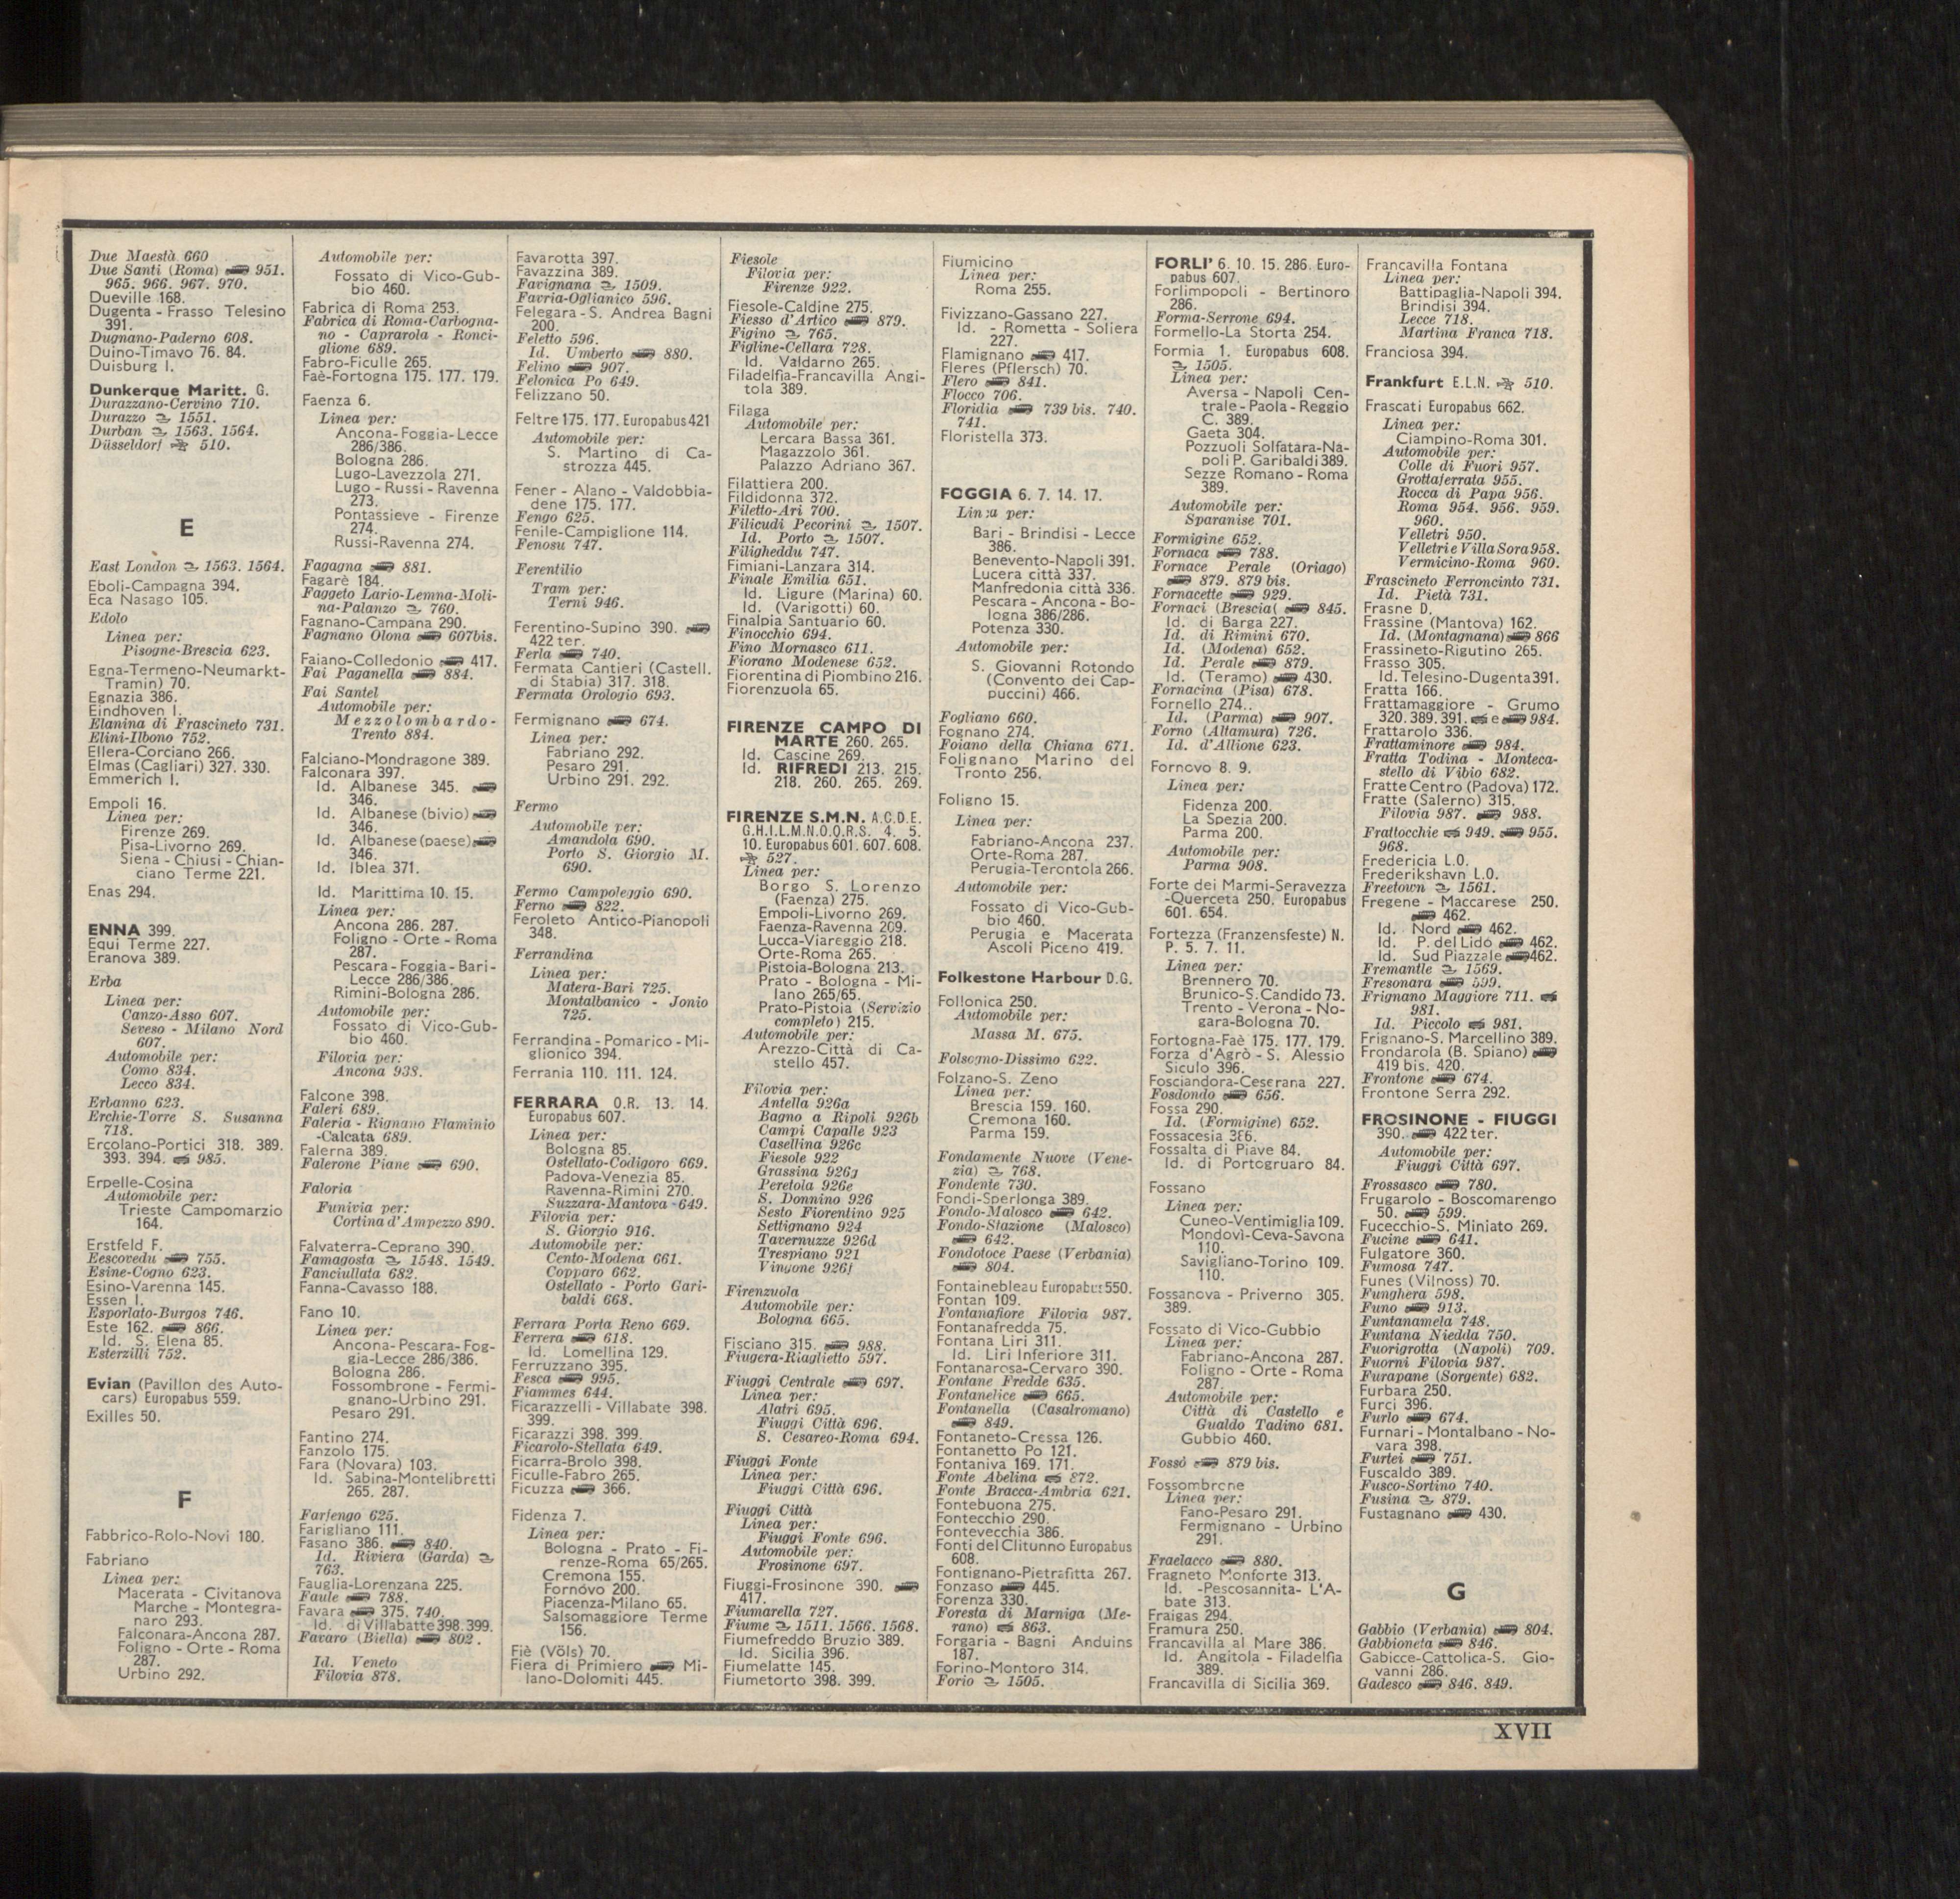 Due Maestà 660
Due Santi (Roma) 951.
965. 966. 967. 970.
Dueville 168.
Dugenta - Frasso Telesino
391.
Dugnano-Paderno 608.
Duino-Timavo 76. 84.
Duisburg I.
Dunkerque Maritt. G.
Durazzano-Cervino 710.
Durazzo 1551.
Durban 1563. 1564.
Düsseldorf 510.
E
East London 1563. 1564.
Eboli-Campagna 394.
Eca Nasago 105.
Edolo
Linea per:
Pisogne-Brescia 623.
Egna-Termeno-Neumarkt-
Tramin) 70.
Egnazia 386.
Eindhoven I.
Elanina di Frascineto 731.
Elini-Ilbono 752.
Ellera-Corciano 266.
Elmas (Cagliari) 327. 330.
Emmerich I.
Empoli 16.
Linea per:
Firenze 269.
Pisa-Livorno 269.
Siena - Chiusi - Chian-
ciano Terme 221.
Enas 294.
ENNA 399.
Equi Terme 227.
Eranova 389.
Erba
Linea per:
Canzo-Asso 607.
Seveso - Milano Nord
607.
Automobile per:
Como 834.
Lecco 834.
Erbanno 623.
Erchie-Torre S. Susanna
718.
Ercolano-Portici 318. 389.
393. 394. 985.
Erpelle-Cosina
Automobile per:
Trieste Campomarzio
164.
Erstfeld F.
Eescovedu 755.
Esine-Cogno 623.
Esino-Varenna 145.
Essen I.
Esporlato-Burgos 746.
Este 162. 866.
Id. S. Elena 85.
Esterzilli 752.
Evian (Pavillon des Auto-
cars) Europabus 559.
Exilles 50.
F
Fabbrico-Rolo-Novi 180.
Fabriano
Linea per:
Macerata - Civitanova
Marche - Montegra-
naro 293.
Falconara-Ancona 287.
Foligno - Orte - Roma
287.
Urbino 292.
Automobile per:
Fossato di Vico-Gub-
bio 460.
Fabrica di Roma 253.
Fabrica di Roma-Carbogna-
no - Caprarola - Ronci-
glione 689.
Fabro-Ficulle 265.
Faè-Fortogna 175. 177. 179.
Faenza 6.
Linea per:
Ancona-Foggia-Lecce
286/386.
Bologna 286.
Lugo-Lavezzola 271.
Lugo - Russi - Ravenna
273.
Pontassieve - Firenze
274.
Russi-Ravenna 274.
Fagagna 881.
Fagarè 184.
Faggeto Lario-Lemna-Moli-
na-Palanzo 760.
Fagnano-Campana 290.
Fagnano Olona 607bis.
Faiano-Colledonio 417.
Fai Paganella 884.
Fai Santel
Automobile per:
Mezzolombardo-
Trento 884.
Falciano-Mondragone 389.
Falconara 397.
Id. Albanese 345.
346.
Id. Albanese (bivio)
346.
Id. Albanese (paese)
346.
Id. Iblea 371.
Id. Marittima 10. 15.
Linea per:
Ancona 286. 287.
Foligno - Orte - Roma
287.
Pescara - Foggia - Bari-
Lecce 286/386.
Rimini-Bologna 286.
Automobile per:
Fossato di Vico-Gub-
bio 460.
Filovia per:
Ancona 938.
Falcone 398.
Faleri 689.
Faleria - Rignano Flaminio
-Calcata 689.
Falerna 389.
Falerone Piane 690.
Faloria
Funivia per:
Cortina d'Ampezzo 890.
Falvaterra-Ceprano 390.
Famagosta 1548. 1549.
Fanciullata 682.
Fanna-Cavasso 188.
Fano 10.
Linea per:
Ancona-Pescara-Fog-
gia-Lecce 286/386.
Bologna 286.
Fossombrone - Fermi-
gnano-Urbino 291.
Pesaro 291.
Fantino 274.
Fanzolo 175.
Fara (Novara) 103.
Id. Sabina-Montelibretti
265. 287.
Farfengo 625.
Farigliano 111.
Fasano 386. 840.
Id. Riviera (Garda)
763.
Fauglia-Lorenzana 225.
Faule 788.
Favara 375. 740.
Id. di Villabatte 398.399.
Favaro (Biella) 802.
Id. Veneto
Filovia 878.
Favarotta 397.
Favazzina 389.
Favignana 1509.
Favria-Oglianico 596.
Felegara-S. Andrea Bagni
200.
Feletto 596.
Id. Umberto 880.
Felino 907.
Felonica Po 649.
Felizzano 50.
Feltre 175. 177. Europabus 421
Automobile per:
S. Martino di Ca-
strozza 445.
Fener - Alano - Valdobbia-
dene 175. 177.
Fengo 625.
Fenile-Campiglione 114.
Fenosu 747.
Ferentilio
Tram per:
Terni 946.
Ferentino-Supino 390.
422 ter.
Ferla 740.
Fermata Cantieri (Castell.
di Stabia) 317. 318.
Fermata Orologio 693.
Fermignano 674.
Linea per:
Fabriano 292.
Pesaro 291.
Urbino 291. 292.
Fermo
Automobile per:
Amandola 690.
Porto S. Giorgio M.
690.
Fermo Campoleggio 690.
Ferno 822.
Feroleto Antico-Pianopoli
348.
Ferrandina
Linea per:
Matera-Bari 725.
Montalbanico - Jonio
725.
Ferrandina - Pomarico - Mi-
glionico 394.
Ferrania 110. 111. 124.
FERRARA O.R. 13. 14.
Europabus 607.
Linea per:
Bologna 85.
Ostellato-Codigoro 669.
Padova-Venezia 85.
Ravenna-Rimini 270.
Suzzara-Mantova 649.
Filovia per:
S. Giorgio 916.
Automobile per:
Cento-Modena 661.
Copparo 662.
Ostellato - Porto Gari-
baldi 668.
Ferrara Porta Reno 669.
Ferrera 618.
Id. Lomellina 129.
Ferruzzano 395.
Fesca 995.
Fiammes 644.
Ficarazzelli - Villabate 398.
399.
Ficarazzi 398. 399.
Ficarolo-Stellata 649.
Ficarra-Brolo 398.
Ficulle-Fabro 265.
Ficuzza 366.
Fidenza 7.
Linea per:
Bologna - Prato - Fi-
renze-Roma 65/265.
Cremona 155.
Fornovo 200.
Piacenza-Milano 65.
Salsomaggiore Terme
156.
Fiè (Völs) 70.
Fiera di Primiero Mi-
lano-Dolomiti 445.
Fiesole
Filovia per:
Firenze 922.
Fiesole-Caldine 275.
Fiesso d'Artico 879.
Figino 765.
Figline-Cellara 728.
Id. Valdarno 265.
Filadelfia-Francavilla Angi-
tola 389.
Filaga
Automobile per:
Lercara Bassa 361.
Magazzolo 361.
Palazzo Adriano 367.
Filattiera 200.
Fildidonna 372.
Filetto-Ari 700.
Filicudi Pecorini 1507.
Id. Porto 1507.
Filigheddu 747.
Fimiani-Lanzara 314.
Finale Emilia 651.
Id. Ligure (Marina) 60.
Id. (Varigotti) 60.
Finalpia Santuario 60.
Finocchio 694.
Fino Mornasco 611.
Fiorano Modenese 652.
Fiorentina di Piombino 216.
Fiorenzuola 65.
FIRENZE CAMPO DI
MARTE 260. 265.
Id. Cascine 269.
Id. RIFREDI 213. 215.
218. 260. 265. 269.
FIRENZE S.M.N. A.C.D.E.
G.H.I.L.M.N.O.Q.R.S. 4. 5.
10. Europabus 601. 607. 608.
527.
Linea per:
Borgo S. Lorenzo
(Faenza) 275.
Empoli-Livorno 269.
Faenza-Ravenna 209.
Lucca-Viareggio 218.
Orte-Roma 265.
Pistoia-Bologna 213.
Prato - Bologna - Mi-
lano 265/65.
Prato-Pistoia (Servizio
completo) 215.
Automobile per:
Arezzo-Città di Ca-
stello 457.
Filovia per:
Antella 926a
Bagno a Ripoli 926b
Campi Capalle 923
Casellina 926c
Fiesole 922
Grassina 926g
Peretola 926e
S. Donnino 926
Sesto Fiorentino 925
Settignano 924
Tavernuzze 926d
Trespiano 921
Vingone 926f
Firenzuola
Automobile per:
Bologna 665.
Fisciano 315. 988.
Fiugera-Riaglietto 597.
Fiuggi Centrale 697.
Linea per:
Alatri 695.
Fiuggi Città 696.
S. Cesareo-Roma 694.
Fiuggi Fonte
Linea per:
Fiuggi Città 696.
Fiuggi Città
Linea per:
Fiuggi Fonte 696.
Automobile per:
Frosinone 697.
Fiuggi-Frosinone 390.
417.
Fiumarella 727.
Fiume 1511. 1566. 1568.
Fiumefreddo Bruzio 389.
Id. Sicilia 396.
Fiumelatte 145.
Fiumetorto 398. 399.
Fiumicino
Linea per:
Roma 255.
Fivizzano-Gassano 227.
Id. - Rometta - Soliera
227.
Flamignano 417.
Fleres (Pflersch) 70.
Flero 841.
Flocco 706.
Floridia 739 bis. 740.
741.
Floristella 373.
FOGGIA 6. 7. 14. 17.
Linea per:
Bari - Brindisi - Lecce
386.
Benevento-Napoli 391.
Lucera città 337.
Manfredonia città 336.
Pescara - Ancona - Bo-
logna 386/286.
Potenza 330.
Automobile per:
S. Giovanni Rotondo
(Convento dei Cap-
puccini) 466.
Fogliano 660.
Fognano 274.
Foiano della Chiana 671.
Folignano Marino del
Tronto 256.
Foligno 15.
Linea per:
Fabriano-Ancona 237.
Orte-Roma 287.
Perugia-Terontola 266.
Automobile per:
Fossato di Vico-Gub-
bio 460.
Perugia e Macerata
Ascoli Piceno 419.
Folkestone Harbour D.G.
Follonica 250.
Automobile per:
Massa M. 675.
Folsogno-Dissimo 622.
Folzano-S. Zeno
Linea per:
Brescia 159. 160.
Cremona 160.
Parma 159.
Fondamente Nuove (Vene-
zia) 768.
Fondente 730.
Fondi-Sperlonga 389.
Fondo-Malosco 642.
Fondo-Stazione (Malosco)
642.
Fondotoce Paese (Verbania)
804.
Fontainebleau Europabus 550.
Fontan 109.
Fontanafiore Filovia 987.
Fontanafredda 75.
Fontana Liri 311.
Id. Liri Inferiore 311.
Fontanarosa-Cervaro 390.
Fontane Fredde 635.
Fontanelice 665.
Fontanella (Casalromano)
849.
Fontaneto-Cressa 126.
Fontanetto Po 121.
Fontaniva 169. 171.
Fonte Abelina 872.
Fonte Bracca-Ambria 621.
Fontebuona 275.
Fontecchio 290.
Fontevecchia 386.
Fonti del Clitunno Europabus
608.
Fontignano-Pietrafitta 267.
Fonzaso 445.
Forenza 330.
Foresta di Marniga (Me-
rano) 863.
Forgaria - Bagni Anduins
187.
Forino-Montoro 314.
Forio 1505.
FORLI' 6. 10. 15. 286. Euro-
pabus 607.
Forlimpopoli - Bertinoro
286.
Forma-Serrone 694.
Formello-La Storta 254.
Formia 1. Europabus 608.
1505.
Linea per:
Aversa - Napoli Cen-
trale - Paola - Reggio
C. 389.
Gaeta 304.
Pozzuoli Solfatara-Na-
poli P. Garibaldi 389.
Sezze Romano - Roma
389.
Automobile per:
Sparanise 701.
Formigine 652.
Fornaca 788.
Fornace Perale (Oriago)
879. 879 bis.
Fornacette 929.
Fornaci (Brescia( 845.
Id. di Barga 227.
Id. di Rimini 670.
Id. (Modena) 652.
Id. Perale 879.
Id. (Teramo) 430.
Fornacina (Pisa) 678.
Fornello 274..
Id. (Parma) 907.
Forno (Altamura) 726.
Id. d'Allione 623.
Fornovo 8. 9.
Linea per:
Fidenza 200.
La Spezia 200.
Parma 200.
Automobile per:
Parma 908.
Forte dei Marmi-Seravezza
-Querceta 250. Europabus
601. 654.
Fortezza (Franzensfeste) N.
P. 5. 7. 11.
Linea per:
Brennero 70.
Brunico-S.Candido 73.
Trento - Verona - No-
gara-Bologna 70.
Fortogna-Faè 175. 177. 179.
Forza d'Agrò - S. Alessio
Siculo 396.
Fosciandora-Ceserana 227.
Fosdondo 656.
Fossa 290.
Id. (Formigine) 652.
Fossacesia 386.
Fossalta di Piave 84.
Id. di Portogruaro 84.
Fossano
Linea per:
Cuneo-Ventimiglia 109.
Mondovì-Ceva-Savona
110.
Savigliano-Torino 109.
110.
Fossanova - Priverno 305.
389.
Fossato di Vico-Gubbio
Linea per:
Fabriano-Ancona 287.
Foligno - Orte - Roma
287.
Automobile per:
Città di Castello e
Gualdo Tadino 681.
Gubbio 460.
Fossò 879 bis.
Fossombrone
Linea per:
Fano-Pesaro 291.
Fermignano - Urbino
291.
Fraelacco 880.
Fragneto Monforte 313.
Id. -Pescosannita- L'A-
bate 313.
Fraigas 294.
Framura 250.
Francavilla al Mare 386.
Id. Angitola - Filadelfia
389.
Francavilla di Sicilia 369.
Francavilla Fontana
Linea per:
Battipaglia-Napoli 394.
Brindisi 394.
Lecce 718.
Martina Franca 718.
Franciosa 394.
Frankfurt E.L.N. 510.
Frascati Europabus 662.
Linea per:
Ciampino-Roma 301.
Automobile per:
Colle di Fuori 957.
Grottaferrata 955.
Rocca di Papa 956.
Roma 954. 956. 959.
960.
Velletri 950.
Velletri e Villa Sora 958.
Vermicino-Roma 960.
Frascineto Ferroncinto 731.
Id. Pietà 731.
Frasne D.
Frassine (Mantova) 162.
Id. (Montagnana) 866
Frassineto-Rigutino 265.
Frasso 305.
Id. Telesino-Dugenta 391.
Fratta 166.
Frattamaggiore - Grumo
320. 389. 391. e 984.
Frattarolo 336.
Frattaminore 984.
Fratta Todina - Monteca-
stello di Vibio 682.
Fratte Centro (Padova) 172.
Fratte (Salerno) 315.
Filovia 987. 988.
Frattocchie 949. 955.
968.
Fredericia L.O.
Frederikshavn L.O.
Freetown 1561.
Fregene - Maccarese 250.
462.
Id. Nord 462.
Id. P. del Lido 462.
Id. Sud Piazzale 462.
Fremantle 1569.
Fresonara 599.
Frignano Maggiore 711.
981.
Id. Piccolo 981.
Frignano-S. Marcellino 389.
Frondarola (B. Spiano)
419 bis. 420.
Frontone 674.
Frontone Serra 292.
FROSINONE - FIUGGI
390. 422 ter.
Automobile per:
Fiuggi Città 697.
Frossasco 780.
Frugarolo - Boscomarengo
50. 599.
Fucecchio-S. Miniato 269.
Fucine 641.
Fulgatore 360.
Fumosa 747.
Funes (Vilnoss) 70.
Funghera 598.
Funo 913.
Funtanamela 748.
Funtana Niedda 750.
Fuorigrotta (Napoli) 709.
Fuorni Filovia 987.
Furapane (Sorgente) 682.
Furbara 250.
Furci 396.
Furlo 674.
Furnari - Montalbano - No-
vara 398.
Furtei 751.
Fuscaldo 389.
Fusco-Sortino 740.
Fusina 879.
Fustagnano 430.
G
Gabbio (Verbania) 804.
Gabbioneta 846.
Gabicce-Cattolica-S. Gio-
vanni 286.
Gadesco 846. 849.
XVII